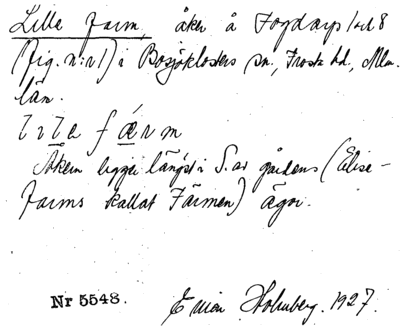 Lille Farm, åker å Fogdarp 1 och 8
(fig. n:r 1) i Bosjöklosters sn., Frosta hd., Mlm.
län.
lıla færm
Åkern ligger längst i S. av gårdens (Elise-
farms kallat Färmen) ägor.
Nr 5548. Holmberg. 1927.